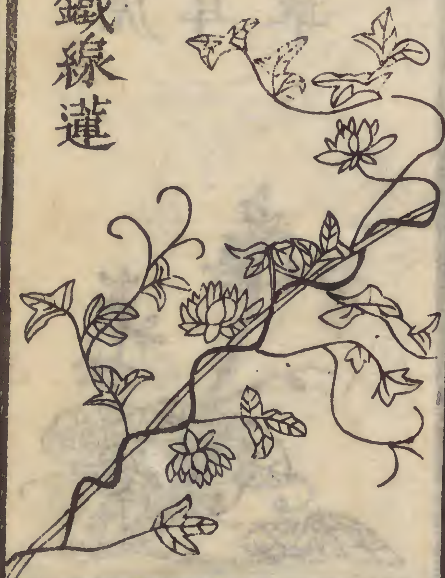 鐵線蓮